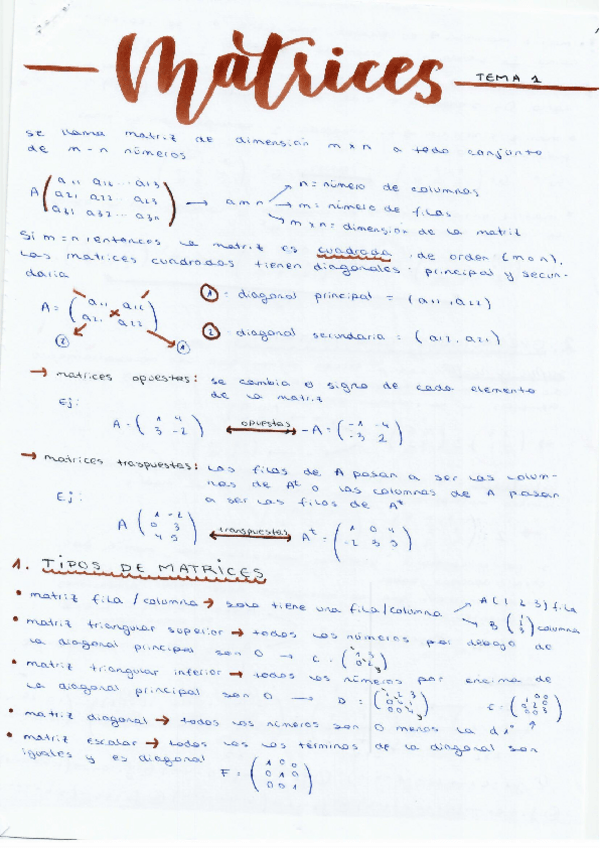 Matrices TEMA 1
se llama matriz de dimensión m x n a todo conjunto
de m - n números
A ( a11 a12 ... a13 → amn n = número de columnas
a21 a22 ... a23 m = número de filas
a31 a32 ... a3n ) m x n = dimensión de la matriz
Si m = n, entonces la matriz es cuadrada, de orden (m o n).
Las matrices cuadradas tienen diagonales: principal y secun-
daria
A = ( a11 a12 ① = diagonal principal = (a11, a22)
a21 a22 ) ② = diagonal secundaria = (a12, a21)
② ①
→ matrices opuestas: se cambia el signo de cada elemento
de la matriz
Ej:
A = ( 1 4 opuestas -A = ( -1 -4
3 -2 ) -3 2 )
→ matrices traspuestas: Las filas de A pasan a ser las colum-
nas de At o las columnas de A pasan
a ser las filas de At
Ej:
A ( 1 -2 transpuestas At = ( 1 0 4
0 3 -2 3 9 )
4 9 )
1. TIPOS DE MATRICES
• matriz fila / columna → solo tiene una fila/columna A (1 2 3) fila
B ( 1 2 3 ) columna
• matriz triangular superior → todos los números por debajo de
la diagonal principal son 0 → C =
• matriz triangular inferior → todos los números por encima de
la diagonal principal son 0 → D = E =
• matriz diagonal → todos los números son 0 menos la d1ª
• matriz escalar → todos los los términos de la diagonal son
iguales y es diagonal
F = ( 1 0 0
0 1 0
0 0 1 )